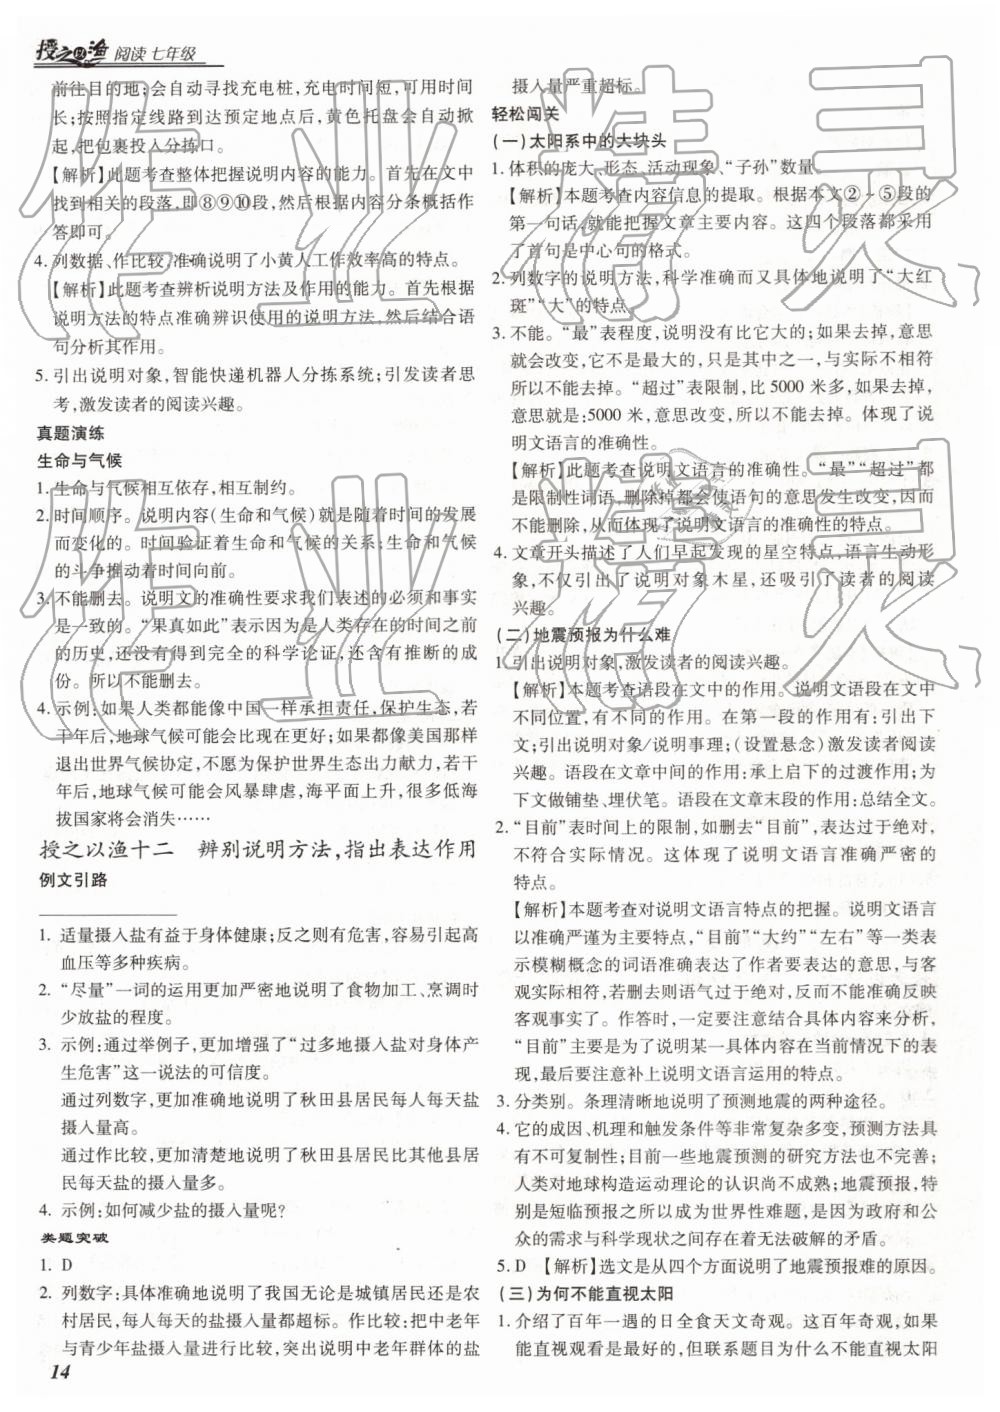 授之以渔 阅读 七年级
前往目的地;会自动寻找充电桩,充电时间短,可用时间
长;按照指定线路到达预定地点后,黄色托盘会自动掀
起,把包裹投入分拣口。
【解析】此题考查整体把握说明内容的能力。首先在文中
找到相关的段落,即⑧⑨⑩段,然后根据内容分条概括作
答即可。
4. 列数据、作比较,准确说明了小黄人工作效率高的特点。
【解析】此题考查辨析说明方法及作用的能力。首先根据
说明方法的特点准确辨识使用的说明方法,然后结合语
句分析其作用。
5. 引出说明对象,智能快递机器人分拣系统;引发读者思
考,激发读者的阅读兴趣。
真题演练
生命与气候
1. 生命与气候相互依存,相互制约。
2. 时间顺序。说明内容(生命和气候)就是随着时间的发展
而变化的。时间验证着生命和气候的关系,生命和气候
的斗争推动着时间向前。
3. 不能删去。说明文的准确性要求我们表述的必须和事实
是一致的。“果真如此”表示因为是人类存在的时间之前
的历史,还没有得到完全的科学论证,还含有推断的成
份。所以不能删去。
4. 示例:如果人类都能像中国一样承担责任,保护生态,若
干年后,地球气候可能会比现在更好;如果都像美国那样
退出世界气候协定,不愿为保护世界生态出力献力,若干
年后,地球气候可能会风暴肆虐,海平面上升,很多低海
拔国家将会消失……
授之以渔十二 辨别说明方法,指出表达作用
例文引路
1. 适量摄入盐有益于身体健康;反之则有危害,容易引起高
血压等多种疾病。
2. “尽量”一词的运用更加严密地说明了食物加工、烹调时
少放盐的程度。
3. 示例:通过举例子,更加增强了“过多地摄入盐对身体产
生危害”这一说法的可信度。
通过列数字,更加准确地说明了秋田县居民每人每天盐
摄入量高。
通过作比较,更加清楚地说明了秋田县居民比其他县居
民每天盐的摄入量多。
4. 示例:如何减少盐的摄入量呢?
类题突破
1. D
2. 列数字:具体准确地说明了我国无论是城镇居民还是农
村居民,每人每天的盐摄入量都超标。作比较:把中老年
与青少年盐摄入量进行比较,突出说明中老年群体的盐
14
摄入量严重超标。
轻松闯关
(一)太阳系中的大块头
1. 体积的庞大、形态、活动现象、“子孙”数量。
【解析】本题考查内容信息的提取。根据本文②~⑤段的
第一句话,就能把握文章主要内容。这四个段落都采用
了首句是中心句的格式。
2. 列数字的说明方法,科学准确而又具体地说明了“大红
斑”“大”的特点。
3. 不能。“最”表程度,说明没有比它大的;如果去掉,意思
就会改变,它不是最大的,只是其中之一,与实际不相符
所以不能去掉。“超过”表限制,比 5000 米多,如果去掉,
意思就是:5000 米,意思改变,所以不能去掉。体现了说
明文语言的准确性。
【解析】此题考查说明文语言的准确性。“最”“超过”都
是限制性词语,删除掉都会使语句的意思发生改变,因而
不能删除,从而体现了说明文语言的准确性的特点。
4. 文章开头描述了人们早起发现的星空特点,语言生动形
象,不仅引出了说明对象木星,还吸引了读者的阅读
兴趣。
(二)地震预报为什么难
1. 引出说明对象,激发读者的阅读兴趣。
【解析】本题考查语段在文中的作用。说明文语段在文中
不同位置,有不同的作用。在第一段的作用有:引出下
文;引出说明对象/说明事理;(设置悬念)激发读者阅读
兴趣。语段在文章中间的作用:承上启下的过渡作用;为
下文做铺垫、埋伏笔。语段在文章末段的作用:总结全文。
2. “目前”表时间上的限制,如删去“目前”,表达过于绝对,
不符合实际情况。这体现了说明文语言准确严密的
特点。
【解析】本题考查对说明文语言特点的把握。说明文语言
以准确严谨为主要特点,“目前”“大约”“左右”等一类表
示模糊概念的词语准确表达了作者要表达的意思,与客
观实际相符,若删去则语气过于绝对,反而不能准确反映
客观事实了。作答时,一定要注意结合具体内容来分析,
“目前”主要是为了说明某一具体内容在当前情况下的表
现,最后要注意补上说明文语言运用的特点。
3. 分类别。条理清晰地说明了预测地震的两种途径。
4. 它的成因、机理和触发条件等非常复杂多变,预测方法具
有不可复制性;目前一些地震预测的研究方法也不完善;
人类对地球构造运动理论的认识尚不成熟;地震预报,特
别是短临预报之所以成为世界性难题,是因为政府和公
众的需求与科学现状之间存在着无法破解的矛盾。
5. D 【解析】选文是从四个方面说明了地震预报难的原因。
(三)为何不能直视太阳
1. 介绍了百年一遇的日全食天文奇观。这百年奇观,如果
能直视观看是最好的,但联系题目为什么不能直视太阳
作业精灵
作业精灵